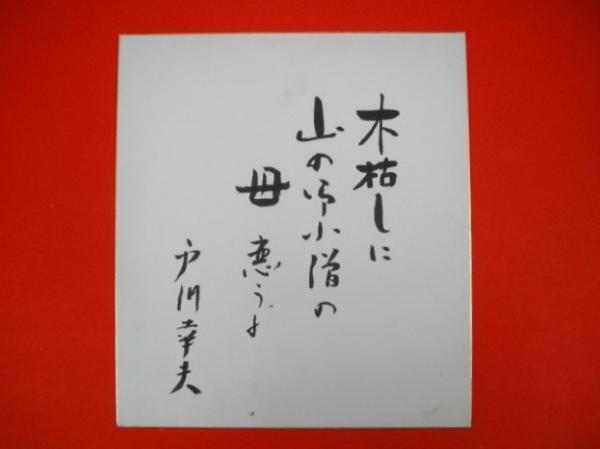 木枯しに
山の小僧の
母恋うよ
戸川幸夫